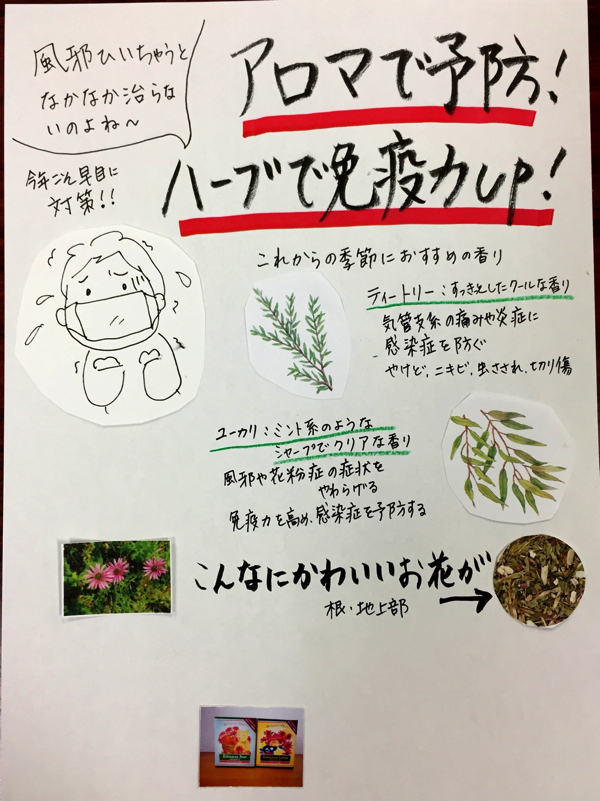 風邪ひいちゃうと
なかなか治らな
いのよね〜
アロマで予防!
ハーブで免疫力UP!
今年こそ早目に
対策!!
これからの季節におすすめの香り
ティートリー:すっきりしたクールな香り
気管支系の痛みや炎症に
感染症を防ぐ
やけど、ニキビ、虫さされ、切り傷
ユーカリ:ミント系のような
シャープでクリアな香り
風邪や花粉症の症状を
やわらげる
免疫力を高め、感染症を予防する
こんなにかわいいお花が
根・地上部